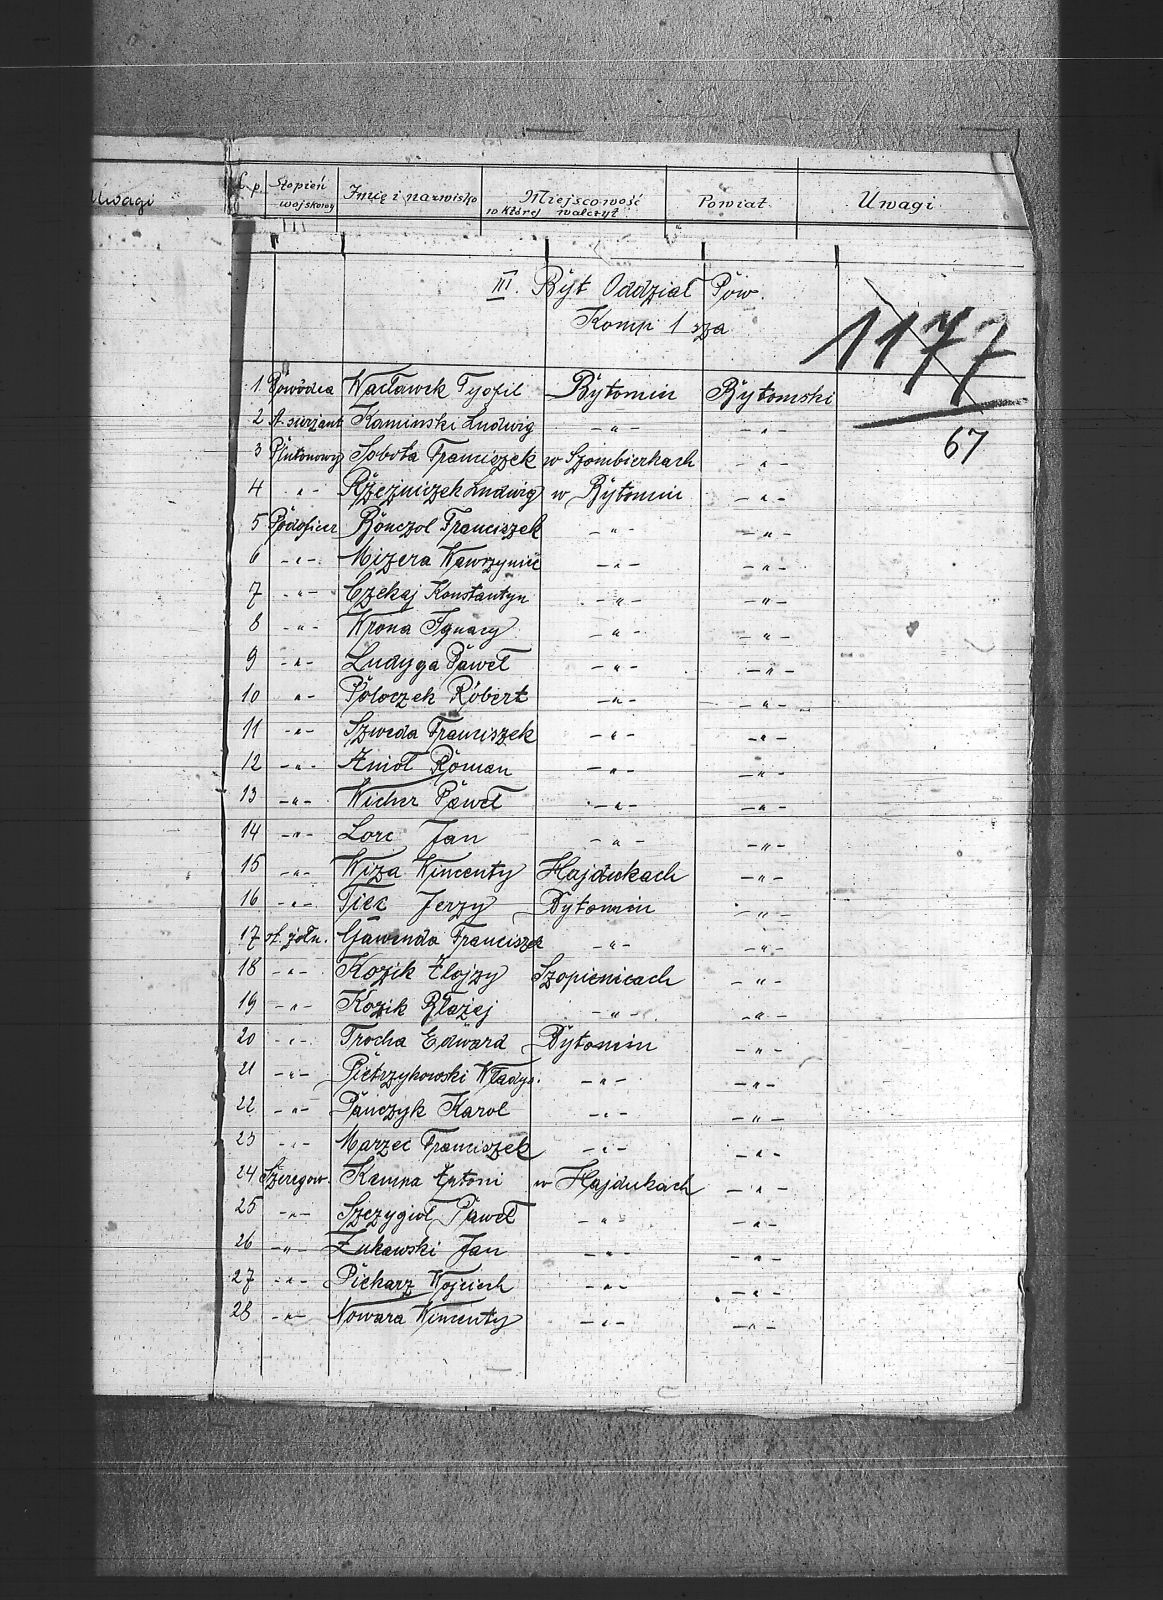 Uwagi
L. p. Stopień wojskowy Imię i nazwisko Miejscowość w której walczył Powiat Uwagi
III. Byt Oddział Pow.
Komp 1 sza
1177
67
1 Dowódca Wacławek Tyofil Bytomiu Bytomski
2 st. sierżant Kaminski Ludwig -"- -"-
3 Plutonowy Sobota Franciszek w Szombierkach -"-
4 "- Rzezniczek Ludwig w Bytomiu -"-
5 Podoficer Bonczol Franciszek -"- -"-
6 -"- Mizera Wawrzyniec -"- -"-
7 -"- Czekaj Konstantyn -"- -"-
8 -"- Wrona Ignacy -"- -"-
9 -"- Ludyga Paweł -"- -"-
10 "- Poloczek Robert -"- -"-
11 -"- Szweda Franciszek -"- -"-
12 -"- Anioł Roman -"- -"-
13 -"- Wicher Paweł -"- -"-
14 -"- Lorc Jan -"- -"-
15 -"- Wiza Wincenty Hajdukach -"-
16 -"- Tiec Jerzy Bytomiu -"-
17 st. żołn. Gawenda Franciszek -"- -"-
18 -"- Kozik Alojzy Szopienicach -"-
19 -"- Kozik Błażej -"- -"-
20 -"- Trocha Edward Bytomiu -"-
21 -"- Pietrzykowski Władys. -"- -"-
22 -"- Panczyk Karol -"- -"-
23 -"- Marzec Franciszek -"- -"-
24 Szeregow. Kania Antoni w Hajdukach -"-
25 -"- Szczygioł Paweł -"- -"-
26 -"- Żukawski Jan -"- -"-
27 -"- Piekarz Wojciech -"- -"-
28 -"- Nowara Wincenty -"- -"-